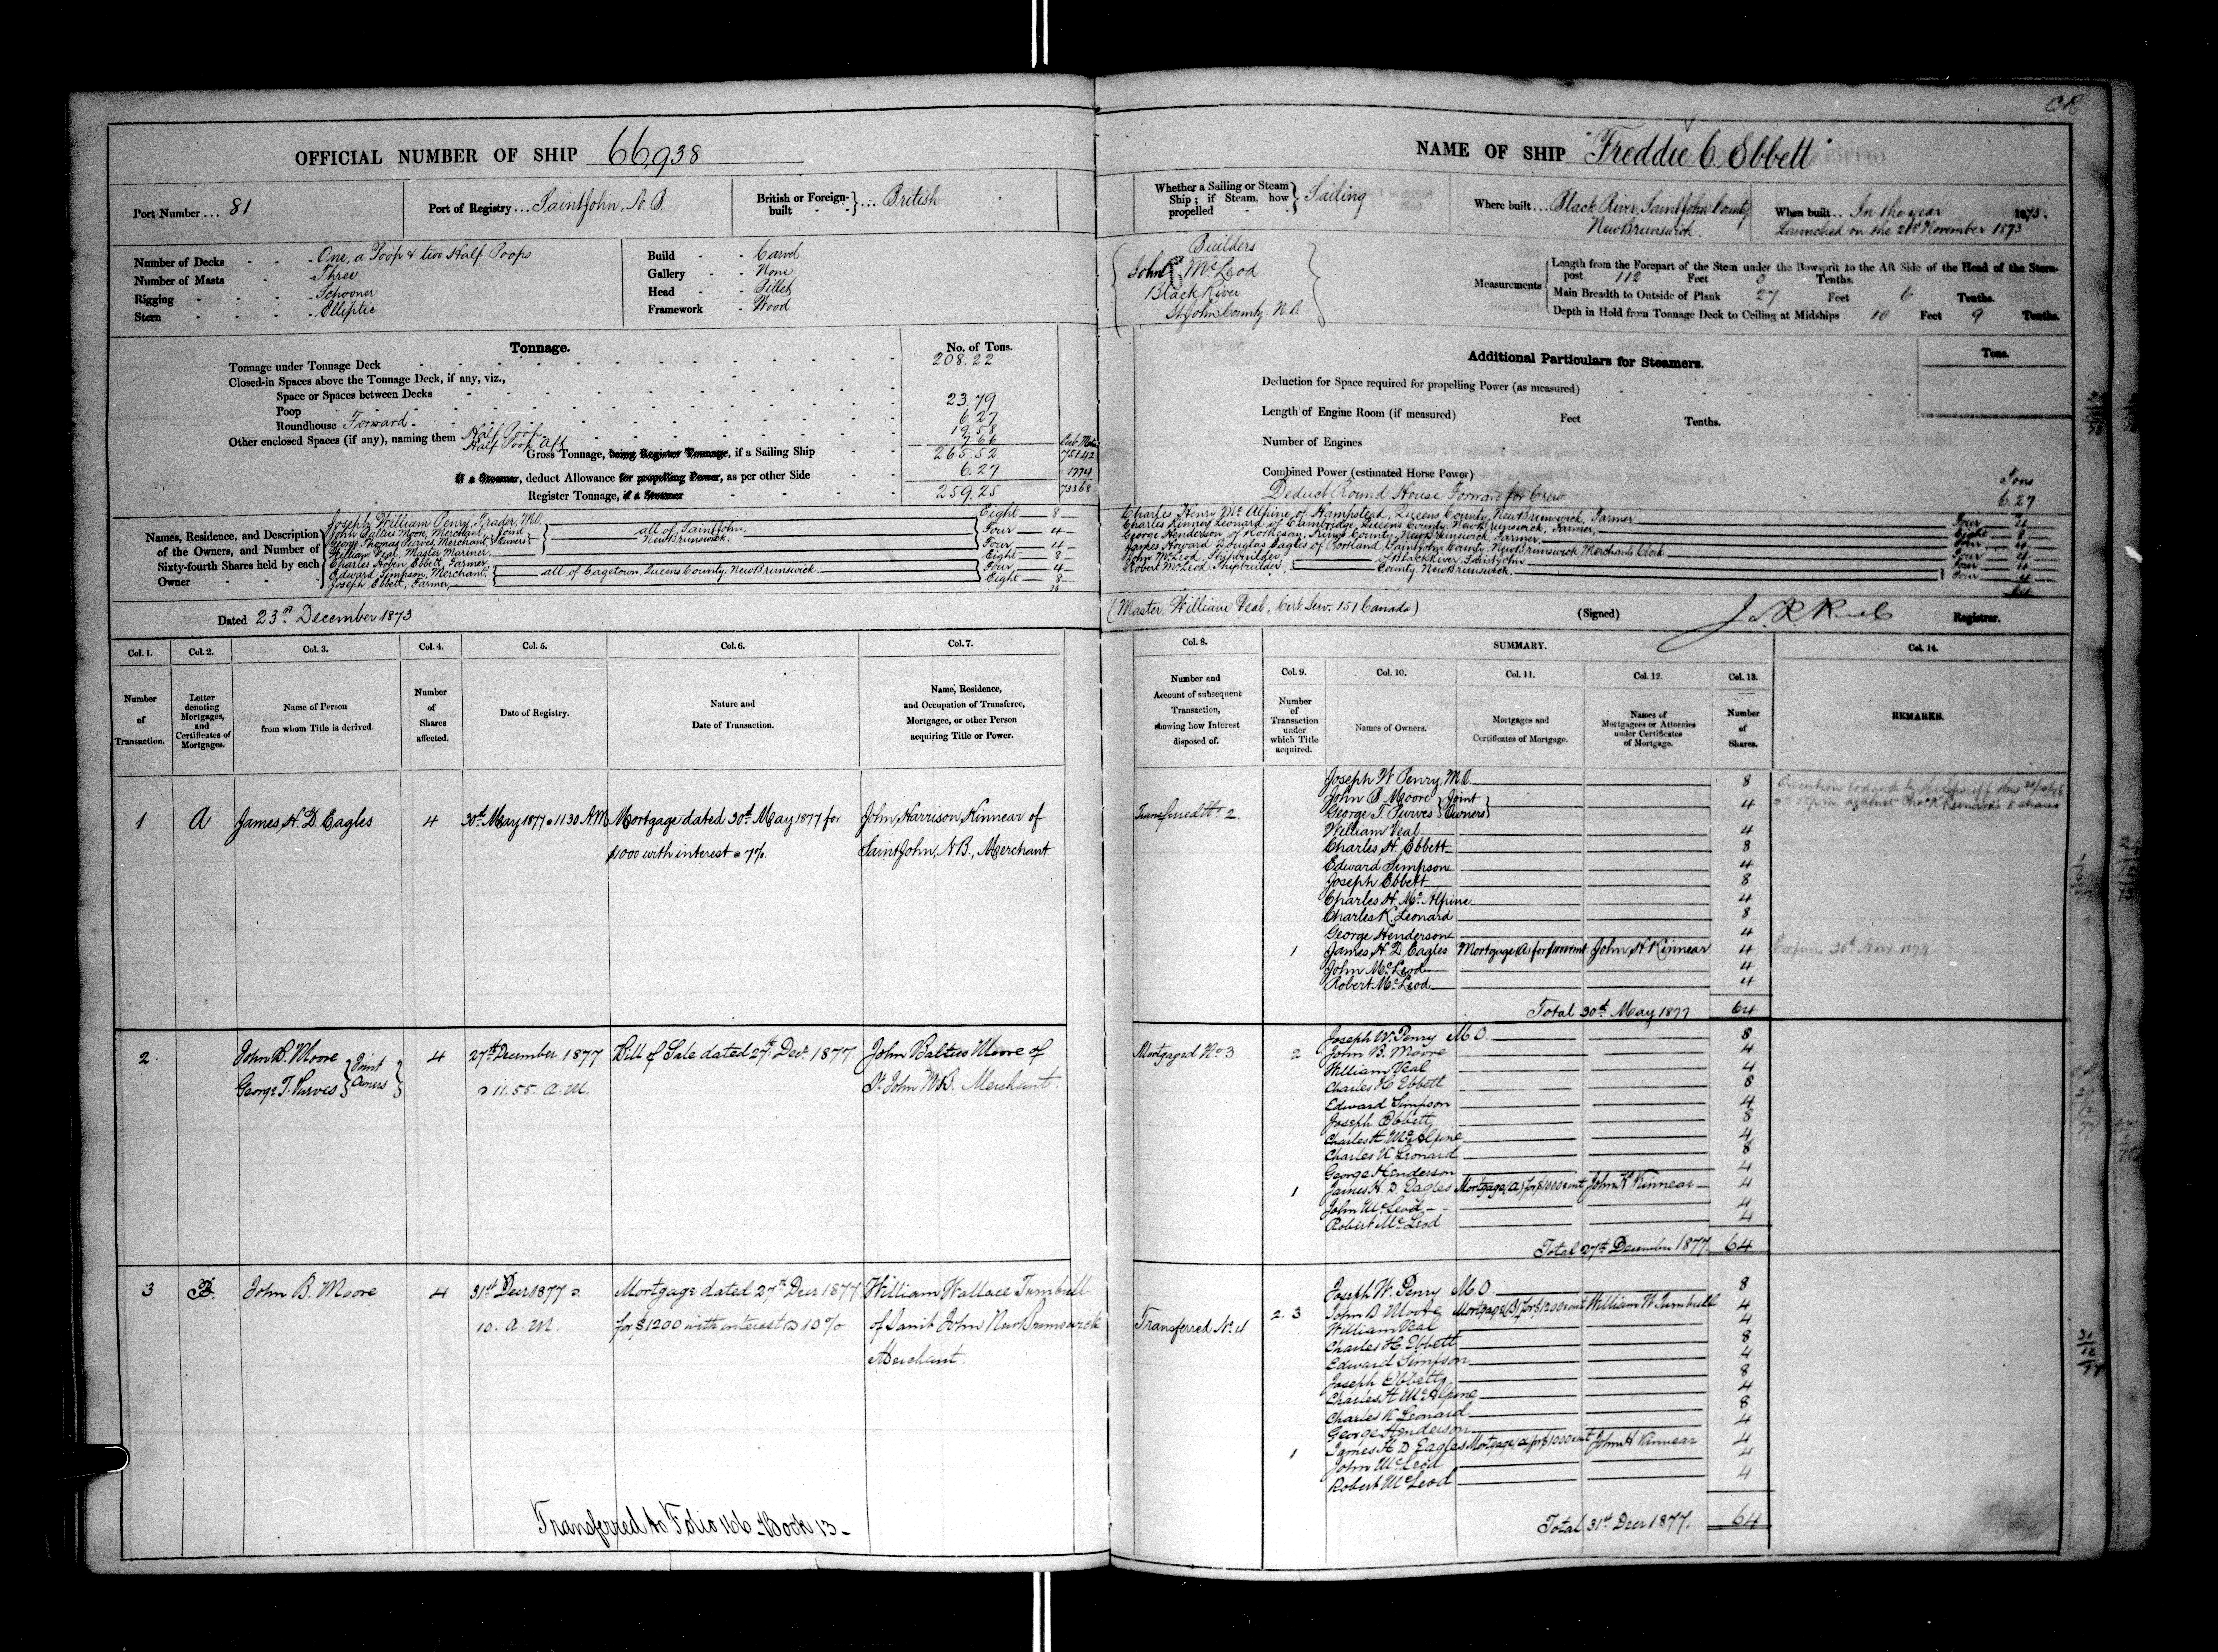 C R
OFFICIAL NUMBER OF SHIP 66,938
Port Number ... 81
Port of Registry ... Saint John, N.B.
British or Foreign-built ... British
Number of Decks - One, a Poop & two Half Poops
Number of Masts - Three
Rigging - Schooner
Stern - Elliptic
Build - Carvel
Gallery - None
Head - Billet
Framework - Wood
Tonnage.
No. of Tons.
Tonnage under Tonnage Deck 208.22
Closed-in Spaces above the Tonnage Deck, if any, viz.,
Space or Spaces between Decks
Poop 23.79
Roundhouse Forward 6.27
Other enclosed Spaces (if any), naming them Half Poop 19.58
Half Poop Aft 7.66
Gross Tonnage, being Register Tonnage, if a Sailing Ship 265.52 751.42
If a Steamer, deduct Allowance for propelling Power, as per other Side 6.27 1774
Register Tonnage, if a Steamer 259.25 733.68
Names, Residence, and Description of the Owners, and Number of Sixty-fourth Shares held by each Owner
Joseph William Penry, Trader, M.O. Eight 8
John Baltus Moore, Merchant, Joint
George Thomas Purves, Merchant, Owners Four 4
all of Saint John, New Brunswick.
William Veal, Master Mariner, Four
Charles Hoben Ebbett, Farmer, Eight 8
Edward Simpson, Merchant, Four 4
Joseph Ebbett, Farmer, Eight 8
all of Gagetown, Queens County, New Brunswick
36
Dated 23rd December 1873
NAME OF SHIP "Freddie C. Ebbett"
Whether a Sailing or Steam Ship; if Steam, how propelled Sailing
Where built ... Black River, Saint John County, New Brunswick.
When built .. In the year 1873.
Launched on the 21st November 1873
Builders
John McLeod
Black River
St. John County. N.B.
Measurements
Length from the Forepart of the Stem under the Bowsprit to the Aft Side of the Head of the Stern-post 112 Feet 0 Tenths.
Main Breadth to Outside of Plank 27 Feet 6 Tenths.
Depth in Hold from Tonnage Deck to Ceiling at Midships 10 Feet 9 Tenths.
Additional Particulars for Steamers.
Tons.
Deduction for Space required for propelling Power (as measured)
Length of Engine Room (if measured) Feet Tenths.
Number of Engines
Combined Power (estimated Horse Power)
Deduct Round House Forward for Crew Tons 6.27
Charles Henry McAlpine of Hampstead, Queens County, New Brunswick, Farmer Four 4
Charles Kinney Leonard of Cambridge, Queens County, New Brunswick, Farmer, Eight 8
George Henderson of Rothesay, Kings County, New Brunswick, Farmer Four 4
James Howard Douglas Eagles of Portland, Saint John County, New Brunswick, Merchants Clerk Four 4
John McLeod, Shipbuilder, Four 4
Robert McLeod, Shipbuilder, Four 4
of Black River, Saint John County, New Brunswick
64
(Master. William Veal, Cert. Serv. 151 Canada)
(Signed) Registrar.
Col. 1. Number of Transaction.
Col. 2. Letter denoting Mortgages, and Certificates of Mortgages.
Col. 3. Name of Person from whom Title is derived.
Col. 4. Number of Shares affected.
Col. 5. Date of Registry.
Col. 6. Nature and Date of Transaction.
Col. 7. Name, Residence, and Occupation of Transferee, Mortgagee, or other Person acquiring Title or Power.
Col. 8. Number and Account of subsequent Transaction, showing how Interest disposed of.
SUMMARY.
Col. 9. Number of Transaction under which Title acquired.
Col. 10. Names of Owners.
Col. 11. Mortgages and Certificates of Mortgage.
Col. 12. Names of Mortgagees or Attornies under Certificates of Mortgage.
Col. 13. Number of Shares.
Col. 14. REMARKS.
1 A James H. D. Eagles 4 30th May 1877 @ 11.30 A.M. Mortgage dated 30th May 1877 for $1000 with interest @ 7%. John Harrison Kinnear of Saint John, N.B., Merchant
Transferred No. 2.
Joseph W Penry, M.O. 8
John B Moore Joint
George T. Purves Owners 4
William Veal 4
Charles H. Ebbett 8
Edward Simpson 4
Joseph Ebbett 8
Charles H. McAlpine 4
Charles K. Leonard 8
George Henderson 4
1 James H. D. Eagles Mortgage (A) for $1000 & int John H Kinnear 4
John McLeod 4
Robert McLeod 4
Total 30th May 1877 64
Execution lodged by the Sheriff this against Leonard's 8 shares
2. John B. Moore George T. Purves Joint Owners 4 27th December 1877 @ 11.55. a.m. Bill of Sale dated 27th Decr 1877. John Baltus Moore of St. John N.B. Merchant.
Mortgaged No 3
2 Joseph W. Penry M.O. 8
John B. Moore 4
William Veal 4
Charles H Ebbett 8
Edward Simpson 4
Joseph Ebbett 8
Charles H. McAlpine 4
Charles K Leonard 8
George Henderson 4
1 James H. D. Eagles Mortgage (A) for $1000 & int John H Kinnear 4
John McLeod 4
Robert McLeod 4
Total 27th December 1877. 64
3 B. John B. Moore 4 31st Decr 1877 @ 10. a.m. Mortgage dated 27th Decr 1877 for $1200 with interest @ 10% William Wallace Turnbull of Saint John New Brunswick Merchant.
Transferred No. 4
Joseph W. Penry M.O. 8
2. 3 John B Moore Mortgage (B) for $1200 & int William W Turnbull 4
William Veal 4
Charles H. Ebbett 8
Edward Simpson 4
Joseph Ebbett 8
Charles H McAlpine 4
Charles K Leonard 8
George Henderson 4
1 James H D Eagles Mortgage (A) for $1000 & int John H Kinnear 4
John McLeod 4
Robert McLeod 4
Total 31st Decr 1877. 64
Transferred to Folio 166 Book 13